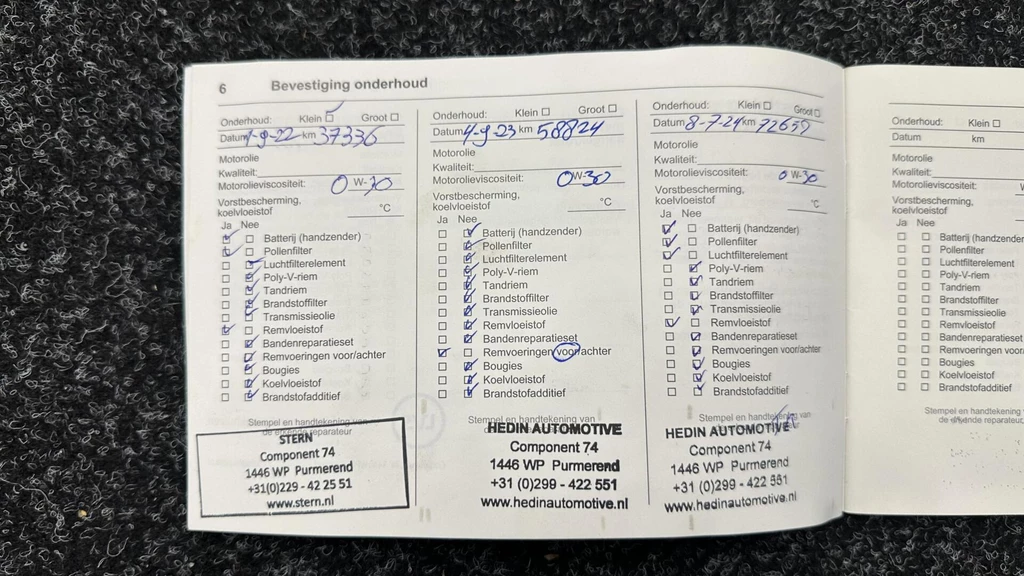 6 Bevestiging onderhoud
Onderhoud: Klein Groot
Datum 1-9-22 km 37336
Motorolie
Kwaliteit:
Motorolieviscositeit: 0 W-30
Vorstbescherming,
koelvloeistof °C
Ja Nee
Batterij (handzender)
Pollenfilter
Luchtfilterelement
Poly-V-riem
Tandriem
Brandstoffilter
Transmissieolie
Remvloeistof
Bandenreparatieset
Remvoeringen voor/achter
Bougies
Koelvloeistof
Brandstofadditief
Stempel en handtekening van
de erkende reparateur
STERN
Component 74
1446 WP Purmerend
+31(0)229 - 42 25 51
www.stern.nl
Onderhoud: Klein Groot
Datum 4-9-23 km 58824
Motorolie
Kwaliteit:
Motorolieviscositeit: 0W-30
Vorstbescherming,
koelvloeistof °C
Ja Nee
Batterij (handzender)
Pollenfilter
Luchtfilterelement
Poly-V-riem
Tandriem
Brandstoffilter
Transmissieolie
Remvloeistof
Bandenreparatieset
Remvoeringen voor/achter
Bougies
Koelvloeistof
Brandstofadditief
Stempel en handtekening van
HEDIN AUTOMOTIVE
Component 74
1446 WP Purmerend
+31 (0)299 - 422 551
www.hedinautomotive.nl
Onderhoud: Klein Groot
Datum 8-7-24 km 72659
Motorolie
Kwaliteit:
Motorolieviscositeit: 0 W-30
Vorstbescherming,
koelvloeistof °C
Ja Nee
Batterij (handzender)
Pollenfilter
Luchtfilterelement
Poly-V-riem
Tandriem
Brandstoffilter
Transmissieolie
Remvloeistof
Bandenreparatieset
Remvoeringen voor/achter
Bougies
Koelvloeistof
Brandstofadditief
Stempel en handtekening van
HEDIN AUTOMOTIVE
Component 74
1446 WP Purmerend
+31 (0)299 - 422 551
www.hedinautomotive.nl
Onderhoud: Klein
Datum km
Motorolie
Kwaliteit:
Motorolieviscositeit:
Vorstbescherming,
koelvloeistof
Ja Nee
Batterij (handzender
Pollenfilter
Luchtfilterelement
Poly-V-riem
Tandriem
Brandstoffilter
Transmissieolie
Remvloeistof
Bandenreparatieset
Remvoeringen voor
Bougies
Koelvloeistof
Brandstofadditief
Stempel en handtekening
de erkende reparateur